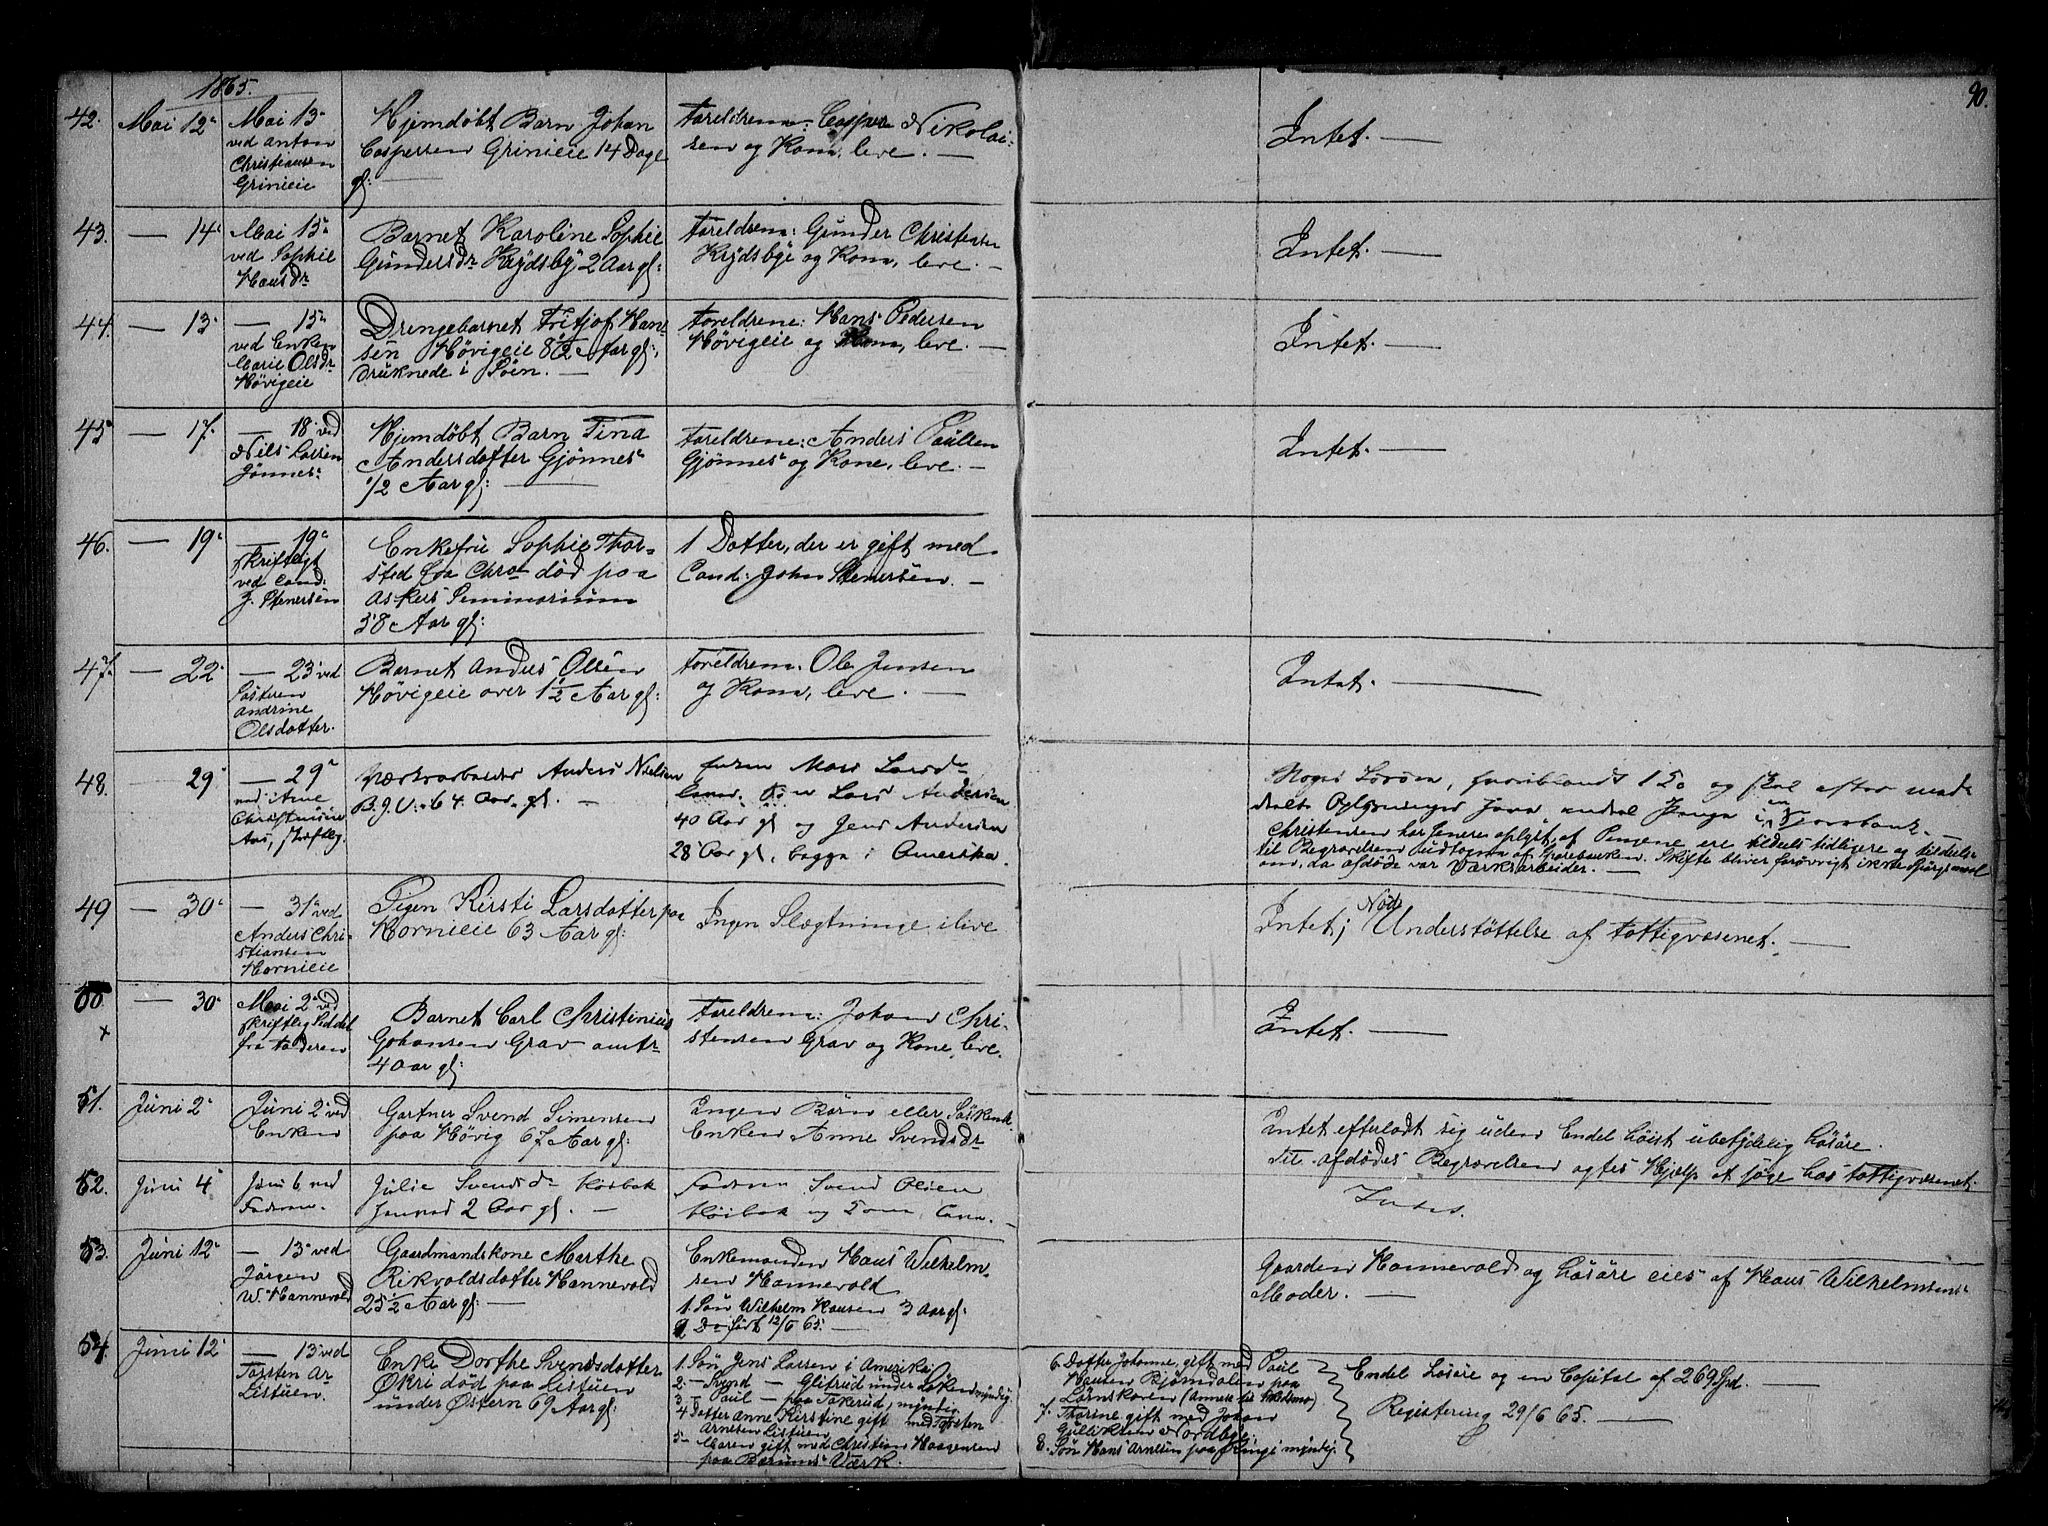 1865.
90.
42.
Mai 12
Mai 13
ved Anton
Christiansen
Grinieie
Hjemdøbt Barn Johan
Caspersen Grinieie 14 Dage
gl:
Foreldrene: Casper Nikolai-
sen og Kone, leve. —
Intet. —
43.
— 14
Mai 15
ved Sophie
Hansdr
Barnet Karoline Sophie
Gundersdr Krydsby 2 Aar gl:
Foreldrene: Gunder Christensen
Krydsbye og Kone, leve. —
Intet. —
44.
— 13
— 15
ved Enken
Marie Olsdr
Høvigeie
Drengebarnet Fritjof Han-
sen Høvigeie 8½ Aar gl:,
druknede i Søen. —
Foreldrene: Hans Pedersen
Høvigeie og Kone, leve. —
Intet. —
45
— 17.
— 18 ved
Nils Larsen
Jønnes
Hjemdøbt Barn Tina
Andersdatter Gjønnes
1/2 Aar gl: —
Foreldrene: Anders Paulsen
Gjønnes og Kone, leve. —
Intet. —
46.
— 19
— 19
skriftligt
ved Cand:
J. Stenersen
Enkefru Sophie Thor-
sted fra Chra død paa
Askers Seminarium
58 Aar gl:
1 Datter, der er gift med
Cand: John Stenersen. —
47.
— 22
— 23 ved
Søsteren
Andrine
Olsdatter.
Barnet Anders Olsen
Høvigeie over 1½ Aar gl:
Foreldrene: Ole Jensen
og Kone, leve. —
Intet. —
48.
— 29
— 29
ved Arne
Christensen
skriftlig
Værksarbeider Anders Nielsen
B.J.V. 64 Aar gl. —
Enken Mari Larsdr
Lars Andersen
40 Aar gl og Jens Andersen
28 Aar gl, begge i Amerika.
Noget Løsøre, 15 og skal efter med-
delte Oplysninger Penge i Sparebank. —
Christensen har senere oplyst, at Pengene ere tildels tidligere og tildels
til Begravelsen udtagne af Sparebanken. Skifte bliver forøvrigt ikke Spørgsmaal
om, da afdøde var Værksarbeider. —
49
— 30
— 31 ved
Anders Chri-
stiansen
Hornieie
Pigen Kirsti Larsdatter paa
Hornieie 63 Aar gl:
Ingen Slægtninge ilive
Intet; Nød Understøttelse af Fattigvæsenet. —
50
x
— 30
Mai 2 ved
skriftlig Seddel
fra Faderen
Barnet Carl Christinius
Johansen Grav omtr
4 Aar gl:
Foreldrene: Johan Chri-
stensen Grav og Kone, leve.
Intet. —
51.
Juni 2
Juni 2 ved
Enken
Gartner Svend Simensen
paa Høvig 67 Aar gl:
Ingen Børn eller Søskende
Enken Anne Svendsdr
Intet efterladt sig uden Endel høist ubetydelig Løsøre.
Til afdødes Begravelsen agtes Hjælp at søge hos Fattigvæsenet.
52.
Juni 4
Juni 6 ved
Faderen.
Julie Svendsdr
2 Aar gl. —
Faderen Svend Olsen
og —
Intet.
53.
Juni 12
— 13 ved
Jørgen
W. Hannevold
Gaardmandskone Marthe
Rikvoldsdatter Hannevold
25½ Aar gl: —
Enkemanden Hans Wilhelm-
sen Hannevold
1. Søn Wilhelm Hansen 3 Aar gl:
2 Do født 12/6 65. —
Gaarden Hannevold og Løsøre eies af Hans Wilhelmsens
Moder. —
54.
Juni 12
— 13 ved
Torsten Ar
Listuen.
Enke Dorthe Svendsdatter
Økri død paa Listuen
under Østern 69 Aar gl:
1. Søn Jens Larsen i Amerika
2 — Svend — Glitrud under Løken myndig.
3 — Paul — paa Takerud, myndig
4 Datter Anne Kirstine gift med Torsten
Arnesen Listuen
5 — Maren gift med Christian Haagensen
paa Bærums Værk.
6. Datter Johanne, gift med Paul
Hansen Bjørndalen paa
Lørnskoven
7. Thorine gift med Johan
Gulliksen Nordby
8. Søn Hans Arnesen paa Ringi myndig.
Endel Løsøre og en Capital af 269 Spd. —
Registering 29/6 65. —